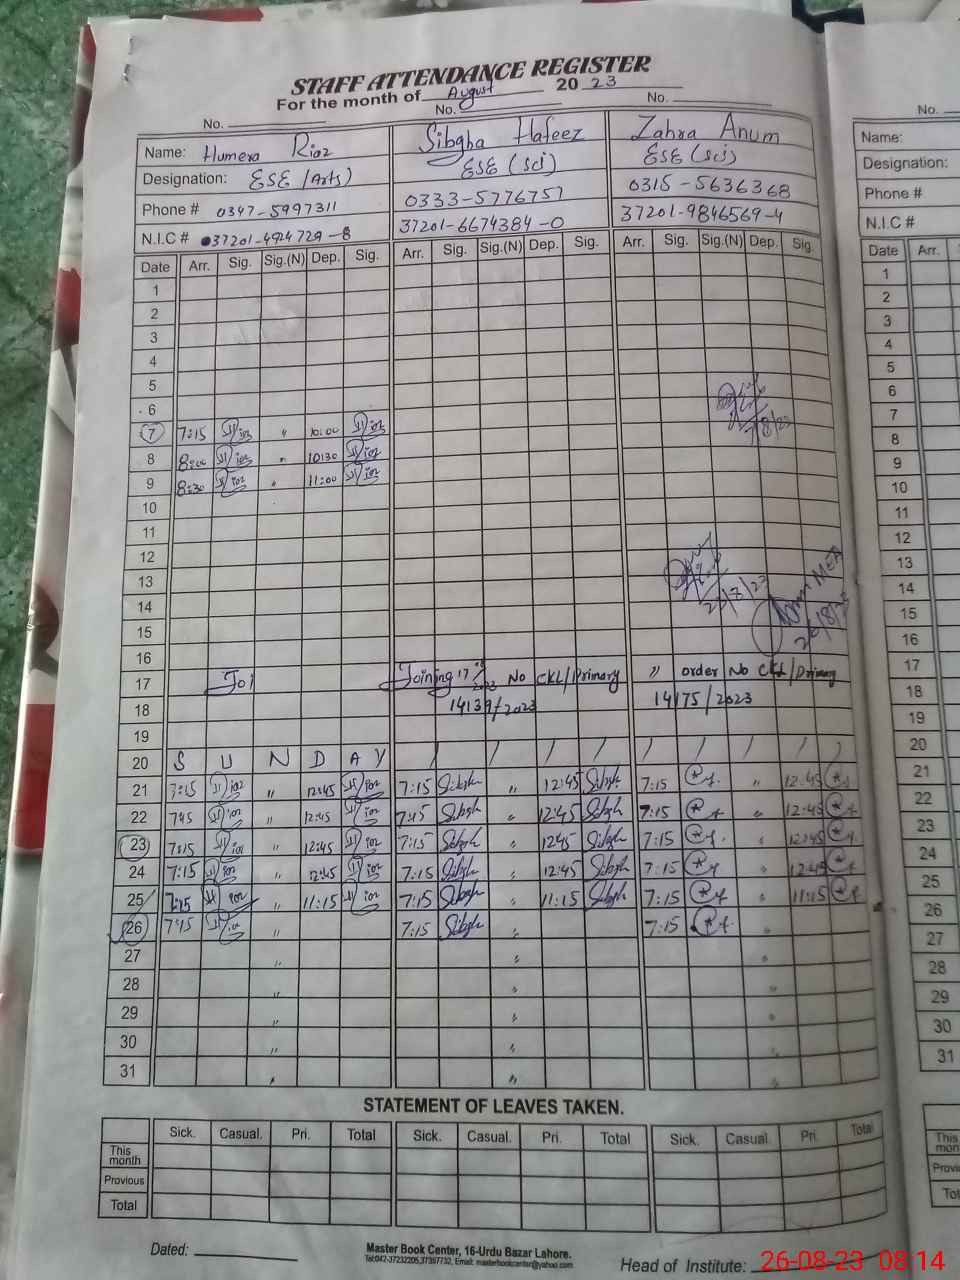 STAFF ATTENDANCE REGISTER
For the month of August 20 23
No. No. No.
Name: Humera Riaz Sibgha Hafeez Zahra Anum
Designation: ESE (Arts) ESE (Sci) ESE (Sci)
Phone # 0347-5997311 0333-5776757 0315-5636368
N.I.C # 37201-4924729-8 37201-6674384-0 37201-9846569-4
Date Arr. Sig. Sig.(N) Dep. Sig. Arr. Sig. Sig.(N) Dep. Sig. Arr. Sig. Sig.(N) Dep. Sig.
1
2
3
4
5
6
7 7:15 " 10:00
7/8/23
8 8:00 " 10:30
9 8:30 " 11:00
10
11
12
13
14
15
16
17 Joi Joining 17 2023 No CKL/Primary " order No CKL/Primary
18 14139/2023 14175/2023
19
20 S U N D A Y / / / / / / / / /
21 7:15 " 12:45 7:15 Sibgh " 12:45 Sibgh 7:15 " 12:45
22 7:45 " 12:45 7:45 Sibgh " 12:45 Sibgh 7:15 " 12:45
23 7:15 " 12:45 7:15 Sibgh " 12:45 Sibgh 7:15 " 12:45
24 7:15 " 12:45 7:15 Sibgh " 12:45 Sibgh 7:15 " 12:45
25 7:15 " 11:15 7:15 Sibgh " 11:15 Sibgh 7:15 " 11:15
26 7:45 " 7:15 Sibgh " 7:15 "
27 " " "
28 " " "
29 " " "
30 " " "
31 " " "
STATEMENT OF LEAVES TAKEN.
Sick. Casual. Pri. Total Sick. Casual. Pri. Total Sick. Casual. Pri. Total
This month
Previous
Total
Dated:
Master Book Center, 16-Urdu Bazar Lahore.
Tel:042-37232205,37397732, Email: masterbookcenter@yahoo.com
Head of Institute:
No.
Name:
Designation:
Phone #
N.I.C #
Date Arr.
1
2
3
4
5
6
7
8
9
10
11
12
13
14
15
16
17
18
19
20
21
22
23
24
25
26
27
28
29
30
31
26-08-23 08:14